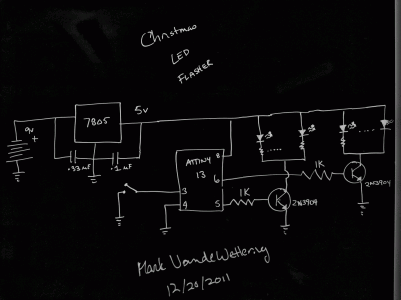 Christmas
LED
FLASHER
9v
+
7805
5v
.33uF
.1uF
ATTINY
13
8
6
3
4
5
1K
1K
2N3904
2N3904
Mark VandeWettering
12/20/2011